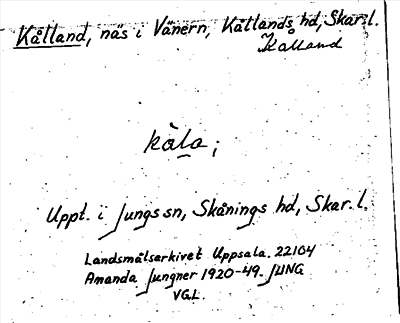 Kålland, näs i Vänern, Kållands hd, Skar.l.
Kålland
kàla;
Uppt. i Jungs sn, Skånings hd, Skar.l.
Landsmålsarkivet Uppsala. 22104
Amanda Jungner 1920-49. JUNG
VGL.